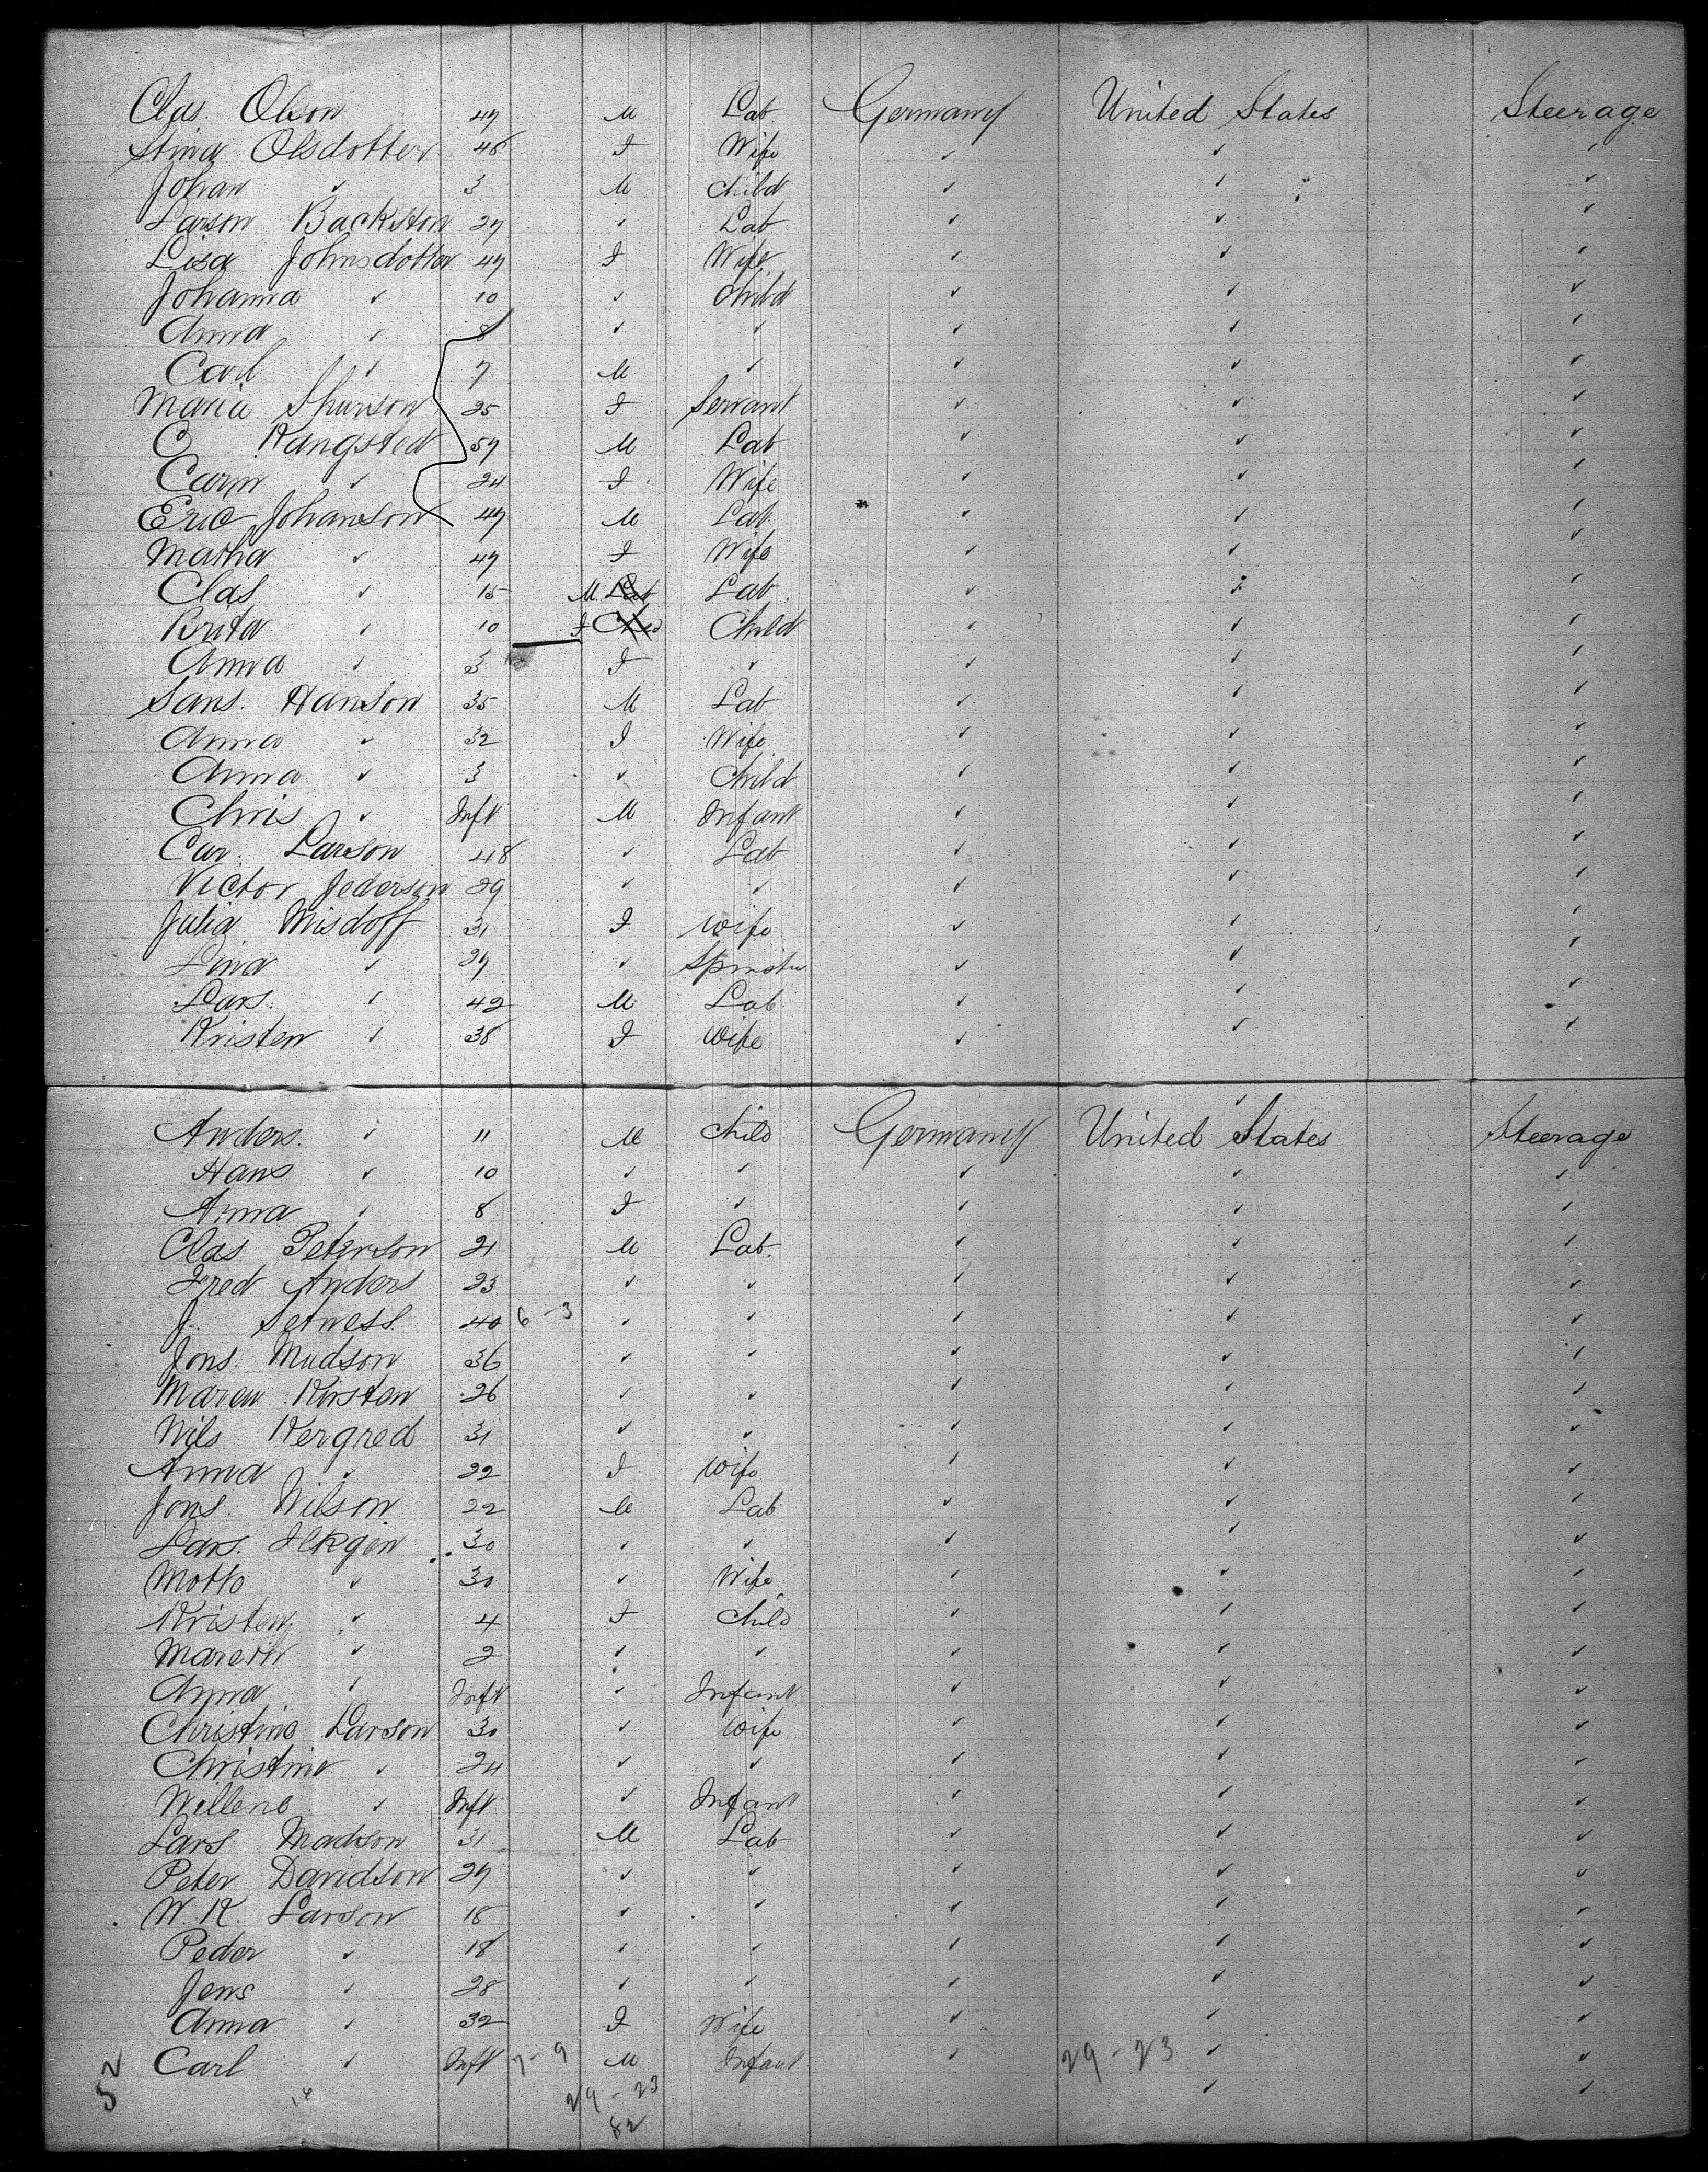 Clas. Olson 47 M Lab. Germany United States Steerage
Stina Olsdotter 48 F Wife ✓ ✓ ✓
Johan ✓ 3 M Child ✓ ✓ ✓
Larson Backston 27 ✓ Lab ✓ ✓ ✓
Lisa Johnsdotter 47 F Wife ✓ ✓ ✓
Johanna ✓ 10 ✓ Child ✓ ✓ ✓
Anna ✓ 8 ✓ ✓ ✓ ✓ ✓
Carl ✓ 7 M ✓ ✓ ✓ ✓
Maria 25 F Servant ✓ ✓ ✓
C Kangsted 57 M Lab ✓ ✓ ✓
Carin ✓ 24 F Wife ✓ ✓ ✓
Eric Johanson 47 M Lab. ✓ ✓ ✓
Martha ✓ 47 F Wife ✓ ✓ ✓
Clas ✓ 15 M Lab Lab. ✓ ✓ ✓
Brita ✓ 10 F Child Child ✓ ✓ ✓
Anna ✓ 3 F ✓ ✓ ✓ ✓
Sans. Hanson 35 M Lab ✓ ✓ ✓
Anna ✓ 32 F Wife ✓ ✓ ✓
Anna ✓ 3 ✓ Child ✓ ✓ ✓
Chris ✓ Inft M Infant ✓ ✓ ✓
Car. Larson 48 ✓ Lab ✓ ✓ ✓
Victor Jederson 29 ✓ ✓ ✓ ✓ ✓
Julia Misdoff 31 F wife ✓ ✓ ✓
Lina ✓ 27 ✓ Spinster ✓ ✓ ✓
Lars. ✓ 42 M Lab ✓ ✓ ✓
Kristen ✓ 38 F wife ✓ ✓ ✓
Anders. ✓ 11 M Child Germany United States Steerage
Hans ✓ 10 ✓ ✓ ✓ ✓ ✓
Anna ✓ 8 F ✓ ✓ ✓ ✓
Clas Peterson 21 M Lab. ✓ ✓ ✓
Fred Anders 23 ✓ ✓ ✓ ✓ ✓
J. Setness. 40 6-3 ✓ ✓ ✓ ✓ ✓
Jons. Mudson 36 ✓ ✓ ✓ ✓ ✓
Maren Kirsten 26 ✓ ✓ ✓ ✓ ✓
Nils Kergred 31 ✓ ✓ ✓ ✓ ✓
Anna ✓ 22 F wife ✓ ✓ ✓
Jons. Nilson 22 M Lab ✓ ✓ ✓
Lars. 30 ✓ ✓ ✓ ✓ ✓
Motto ✓ 30 ✓ Wife ✓ ✓ ✓
Kristen ✓ 4 F Child ✓ ✓ ✓
Mareth ✓ 2 ✓ ✓ ✓ ✓ ✓
Anna ✓ Inft ✓ Infant ✓ ✓ ✓
Christine Larson 30 ✓ wife ✓ ✓ ✓
Christine ✓ 24 ✓ ✓ ✓ ✓ ✓
Willene ✓ Inft ✓ Infant ✓ ✓ ✓
Lars Madson 31 M Lab ✓ ✓ ✓
Peter Davidson 27 ✓ ✓ ✓ ✓ ✓
W. K. Larson 18 ✓ ✓ ✓ ✓ ✓
Peder ✓ 18 ✓ ✓ ✓ ✓ ✓
Jens ✓ 28 ✓ ✓ ✓ ✓ ✓
Anna ✓ 32 F Wife ✓ ✓ ✓
52 Carl ✓ Inft 7-9 M Infant ✓ 29-23 ✓ ✓
29-23 ✓ ✓
82